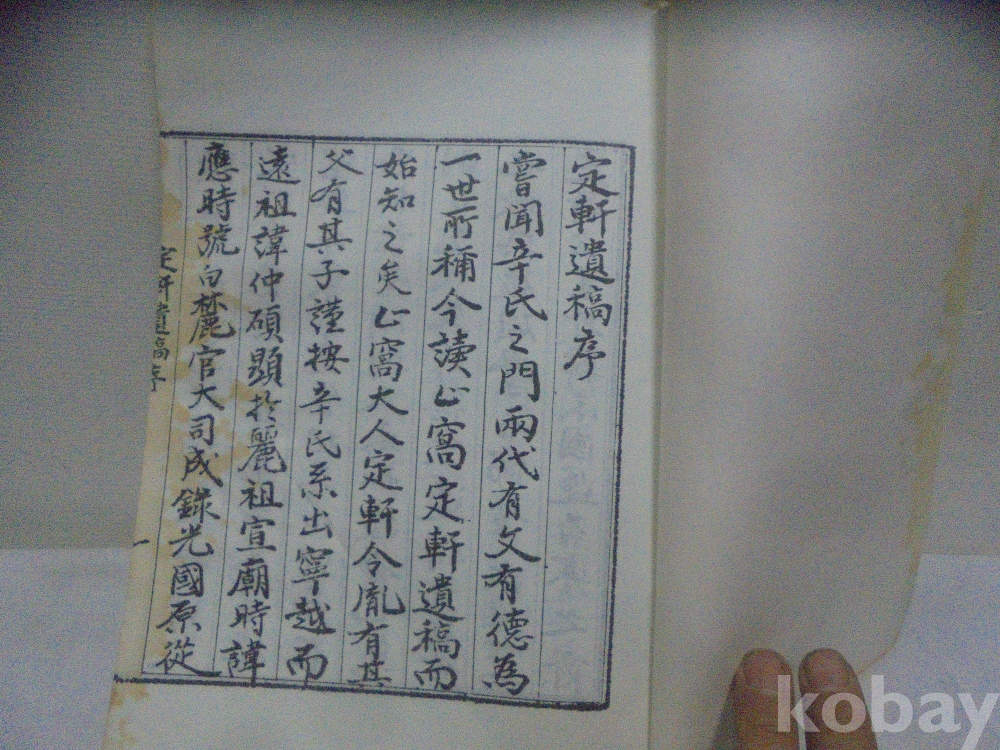 定軒遺稿序
嘗聞辛氏之門兩代有文有德為
一世所稱今讀心窩定軒遺稿而
始知之矣心窩大人定軒令胤有其
父有其子謹按辛氏系出寧越而
遠祖諱仲碩顯於麗祖宣廟時諱
應時號白麓官大司成錄光國原從
定軒遺稿序
一
kobay